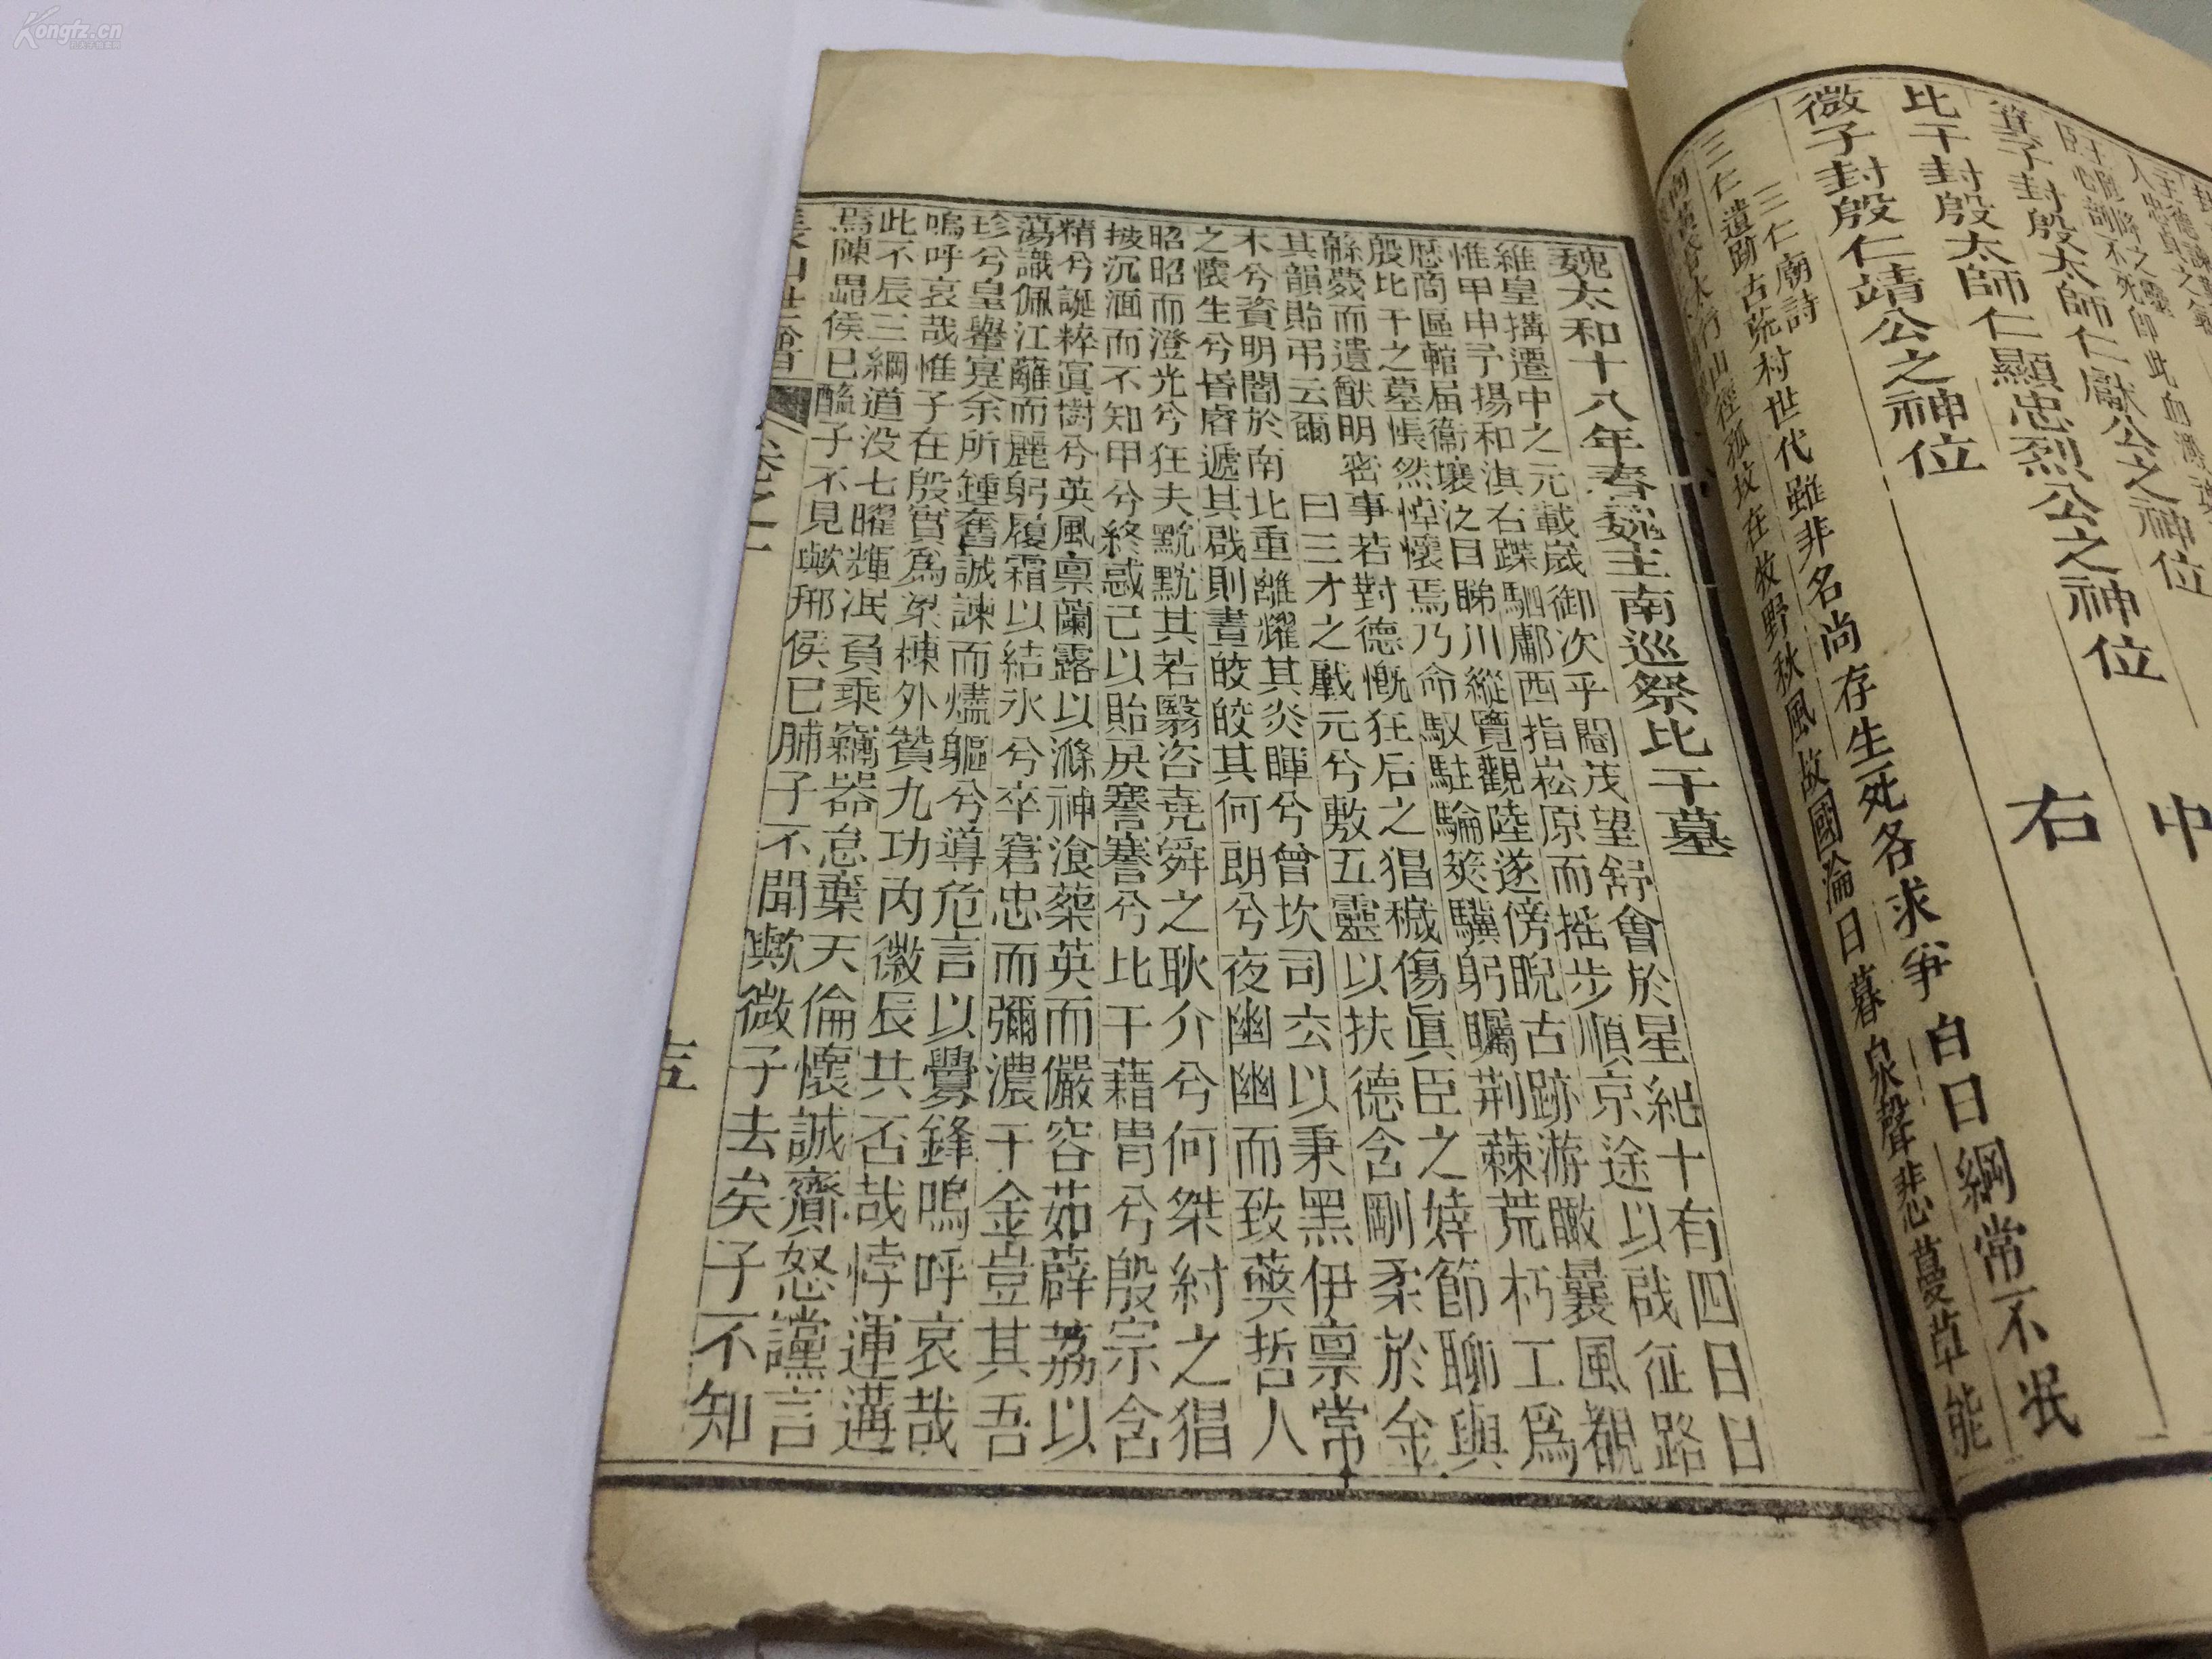 箕子封殷太師仁獻公之神位
比干封殷太師仁顯忠烈公之神位 中
微子封殷仁靖公之神位 右
三仁廟詩
三仁遺跡古荒村世代雖非名尚存生死各求爭白日綱常不泯
太行山徑孤坟在牧野秋風故國淪日暮泉聲悲蔓草能
魏太和十八年春魏主南巡祭比干墓
維皇搆遷中之元載嵗御次乎閹茂望舒會於星紀十有四日日
惟甲申予揚和淇右蹀駟鄘西指崧原而摇步順京途以啟征路
歴商區輶届衞壤泛目睇川縱覽觀陸遂傍睨古跡游瞰曩風覩
殷比干之墓悵然悼懷焉乃命馭駐輪筴驥躬矚荆蕀荒朽工爲
緜薎而遺猷明密事若對德慨狂后之猖穢傷眞臣之婞節聊與
其韻貽弔云爾 曰三才之戴元兮敷五靈以扶德含剛柔於金
木兮資明闇於南北重離耀其炎暉兮曾坎司玄以秉黑伊禀常
之懷生兮昏睿遞其啟則晝皎皎其何朗兮夜幽幽而致薆哲人
昭昭而澄光兮狂夫黖黖其若翳咨堯舜之耿介兮何桀紂之猖
披沉湎而不知甲兮終惑己以貽戾謇謇兮比干藉冑兮殷宗含
精兮誕粹冥樹兮英風禀蘭露以滌神湌蘂英而儼容茹薜荔以
蕩識佩江蘺而麗躬履霜以結氷兮卒窘忠而彌濃千金豈其吾
珍兮皇舉寔余所鍾奮誠諫而燼軀兮導危言以釁鋒嗚呼哀哉
嗚呼哀哉惟子在殷實爲梁棟外贊九功内徽辰共否哉悖運遘
此不辰三綱道没七曜輝泯負乘竊器怠棄天倫懷誠齎怒讜言
焉陳侯已醢子不見歟邢侯已脯子不聞歟微子去矣子不知
卷之一
Kongfz.cn